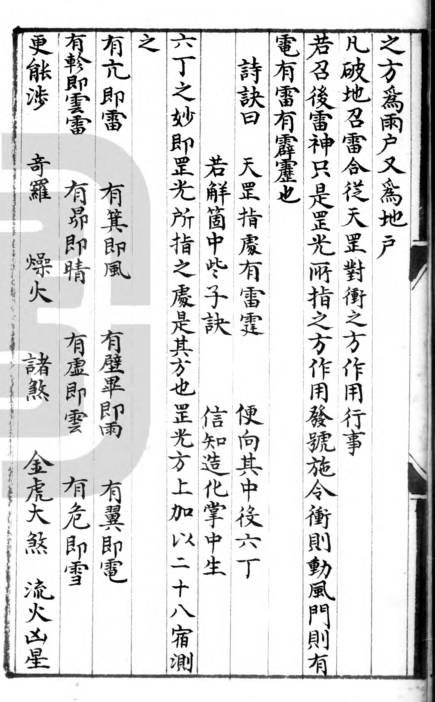 之方為雨户又為地户
凡破地召雷合從天罡對衝之方作用行事
若召後雷神只是罡光所指之方作用發號施令衝則動風門則有
電有雷有霹靂也
詩訣曰　天罡指處有雷霆　便向其中役六丁
若解箇中些子訣　信知造化掌中生
六丁之妙即罡光所指之處是其方也罡光方上加以二十八宿測
之
有亢即雷　有箕即風　有壁畢即雨　有翼即電
有軫即雲雷　有昴即晴　有虛即雲　有危即雪
更能涉　奇羅　燥火　諸煞　金虎大煞　流火凶星